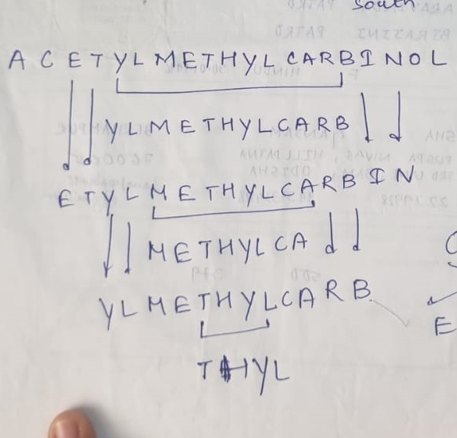 South
ACETYLMETHYLCARBINOL
YLMETHYLCARB
ETYLMETHYLCARBIN
METHYLCA
YLMETHYLCARB
THYL
E